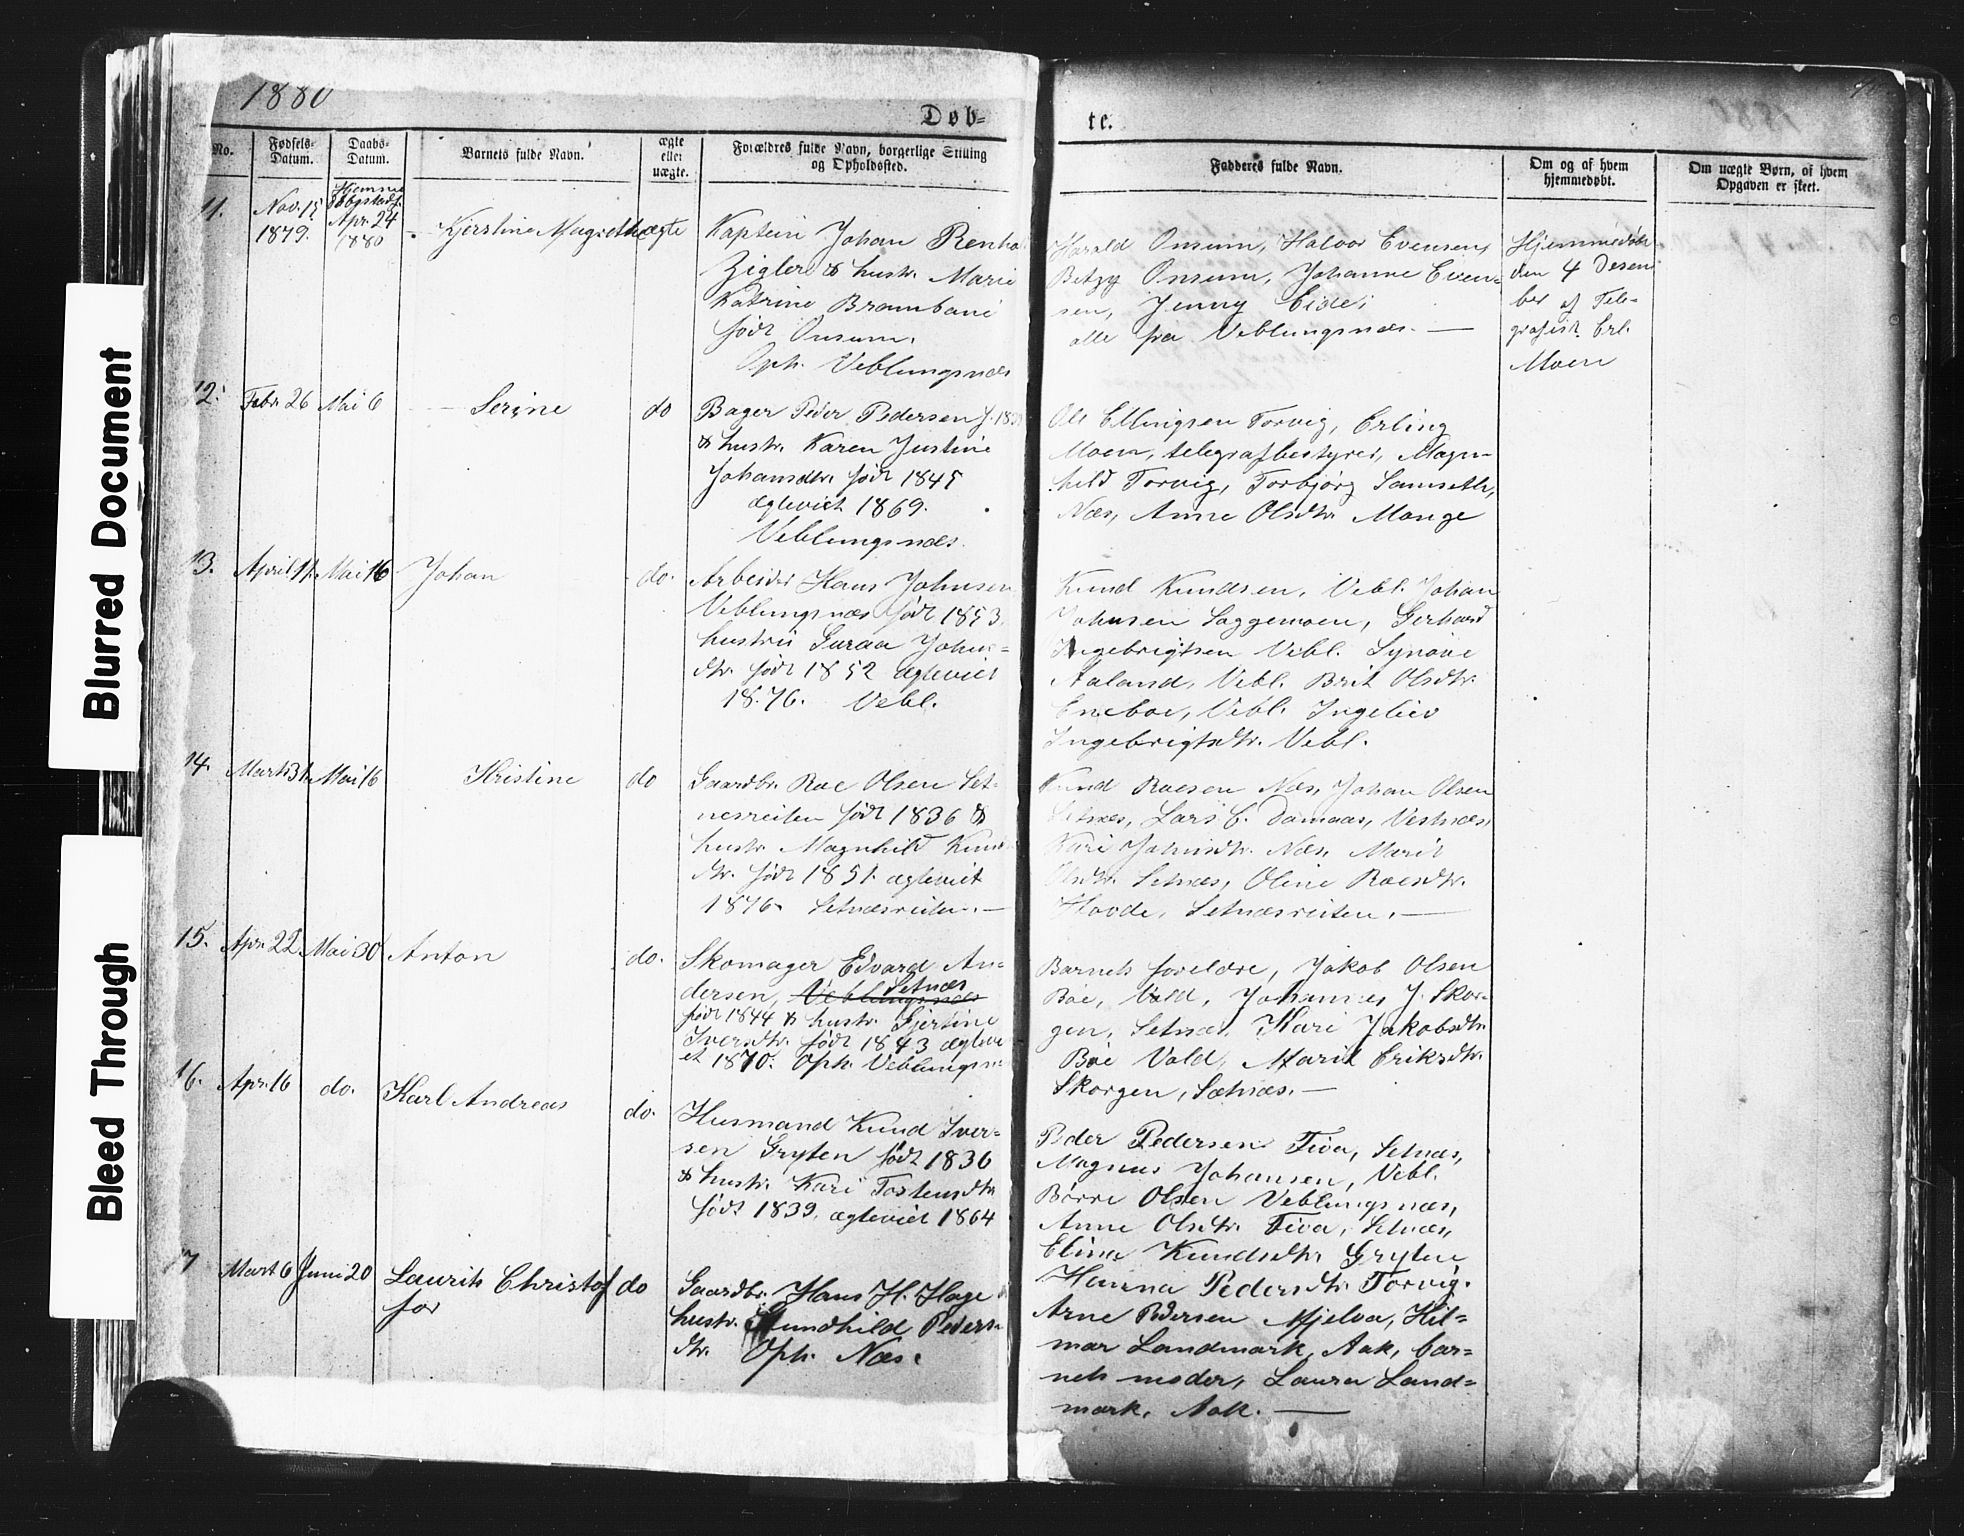 1880
Døb-
te.
No.
Fødsels-
Datum.
Daabs-
Datum.
Barnets fulde Navn.
ægte
eller
uægte.
Forældres fulde Navn, borgerlige Stilling
og Opholdssted.
Fadderes fulde Navn.
Om og af hvem
hjemmedøbt.
Om uægte Børn, af hvem
Opgaven er skeet.
11.
Nov. 15
1879.
Apr. 24
1880
Kjerstine Magrethe
ægte
Kaptein Johan Renho
Zigler & hustr. Marie
Katrine Brambani
født Onsum.
Oph. Veblungsnæs
Harald Onsum, Halvor Evensen,
Betzy Onsum, Johanne Even-
sen, Jenny Eide,
alle fra Veblungsnæs. —
Hjemmedøbt
den 4 Desem
ber af Tele-
grafist Erl.
Moen
12.
Febr. 26
Mai 6
Serine
do
Bager Peder Pedersen f. 183
& hustr. Karen Justine
Johansdtr. født 1845
ægteviet 1869.
Veblungsnæs.
Ole Ellingsen Torvig, Erling
Moen, telegrafbestyrer, Magn-
hild Torvig, Torbjørg Samseth,
Næs, Anne Olsdtr. Monge
13.
April 11.
Mai 16
Johan
do.
Arbeider Hans Johnsen
Veblungsnæs født 1853,
hustru Guraa Johns-
dtr. født 1852 ægteviet
1876. Vebl.
Knud Knudsen, Vebl. Johan
Johnsen Soggemoen, Gerhard
Ingebrigtsen Vebl. Synøve
Aaland, Vebl. Brit Olsdtr.
Eneboe, Vebl. Ingebor
Ingebrigtsdtr. Vebl.
14.
Marts 31.
Mai 16
Kristine
do
Gaardbr. Roe Olsen Set-
nesreiten født 1836 &
hustr. Magnhild Knuds
dtr. født 1851. ægteviet
1876. Setnæsreiten. —
Knud Roesen Næs, Johan Olsen
Setnæs, Lars C. Damaas, Vestnæs,
Kari Johnsdtr. Næs. Marit
Olsdtr. Setnæs, Oline Roesdtr.
Hovde, Setnæsreiten. —
15.
Apr. 22
Mai 30
Anton
do.
Skomager Edvard An-
Setnæs
dersen, Veblungsnæs
født 1844 & hustr. Gjertine
Iversdtr. født 1843 ægtevi
et 1870. Oph. Veblungsn.
Barnets foreldre, Jakob Olsen
Bøe, Vold, Johannes J. Skor-
gen, Setnæs. Kari Jakobsdtr.
Bøe Vold, Marit Eriksdtr.
Skorgen, Sætnæs. —
16.
Apr. 16
do.
Karl Andreas
do.
Husmand Knud Iver-
sen Gryten født 1836
& hustr. Kari Tostensdtr
født 1839, ægteviet 1864
Peder Pedersen Fiva, Setnæs,
Magnus Johansen, Vebl.
Børre Olsen Veblungsnæs,
Anne Olsdtr. Fiva, Setnæs,
Elina Knudsdtr. Gryten
17
Mart 6
Juni 20
Laurits Christof
for
do
Gaardbr. Hans H. Hage
hustr. Gundhild Peders-
dtr. Oph. Næs.
Hanna Pedersdtr. Torvig.
Arne Pedersen Mjelva, Hil-
mar Landmark, Aak, bar-
nets moder, Laura Land-
mark, Aak. —
Blurred Document
Bleed Through